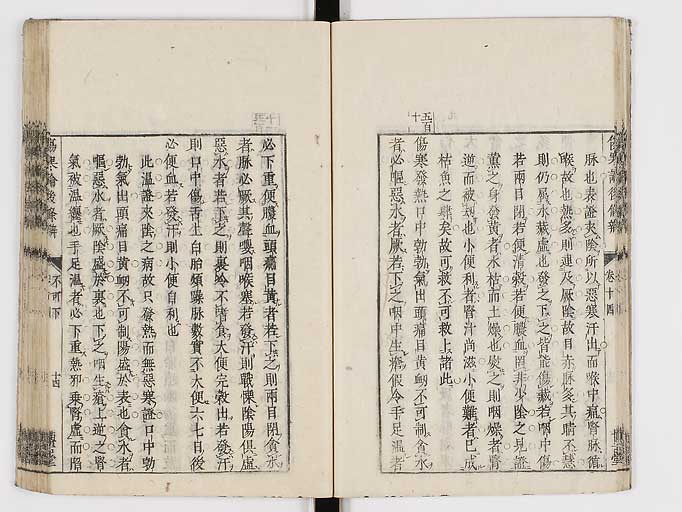 脉也表證夾陰所以惡寒汗出而喉中痛腎脉循
喉故也熱多則連及厥陰故目赤脉多其睛不慧
則仍屬水藏虛也發之下之皆能傷藏若咽中傷
若兩目閉若便清穀若便膿血罔非少陰之見證
薰之身發黃者水枯而土燥也熨之則咽燥者腎
逆而被刼也小便利者腎汁尚滋小便難者已成
枯魚之肆矣故可救不可救上諸此
傷寒發熱口中勃勃氣出頭痛目黃衂不可制貪水
者必嘔惡水者厥若下之咽中生瘡假令手足溫者
必下重便膿血頭痛目黃者若下之則兩目閉貪水
者脉必厥其聲嚶咽喉塞若發汗則戰慄陰陽俱虛
惡水者若下之則裏冷不嗜食大便完穀出若發汗
則口中傷舌上白胎煩躁脉數實不大便六七日後
必便血若發汗則小便自利也
此溫證夾陰之病故只發熱而無惡寒證口中勃
勃氣出頭痛目黃衂不可制陽盛於表也貪水者
嘔惡水者厥陰盛於裏也下之咽生瘡上逆之腎
氣被溫釀也手足溫者必下重熱邪乘腎虛而陷
卷十四
不可下
十四